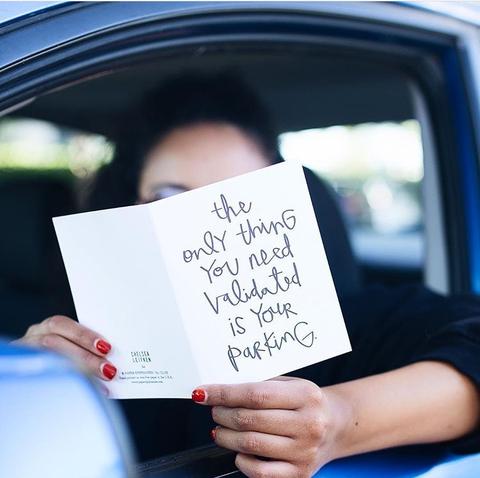 the
only thing
you need
validated
is your
parking.
CHELSEA
LEIFKEN